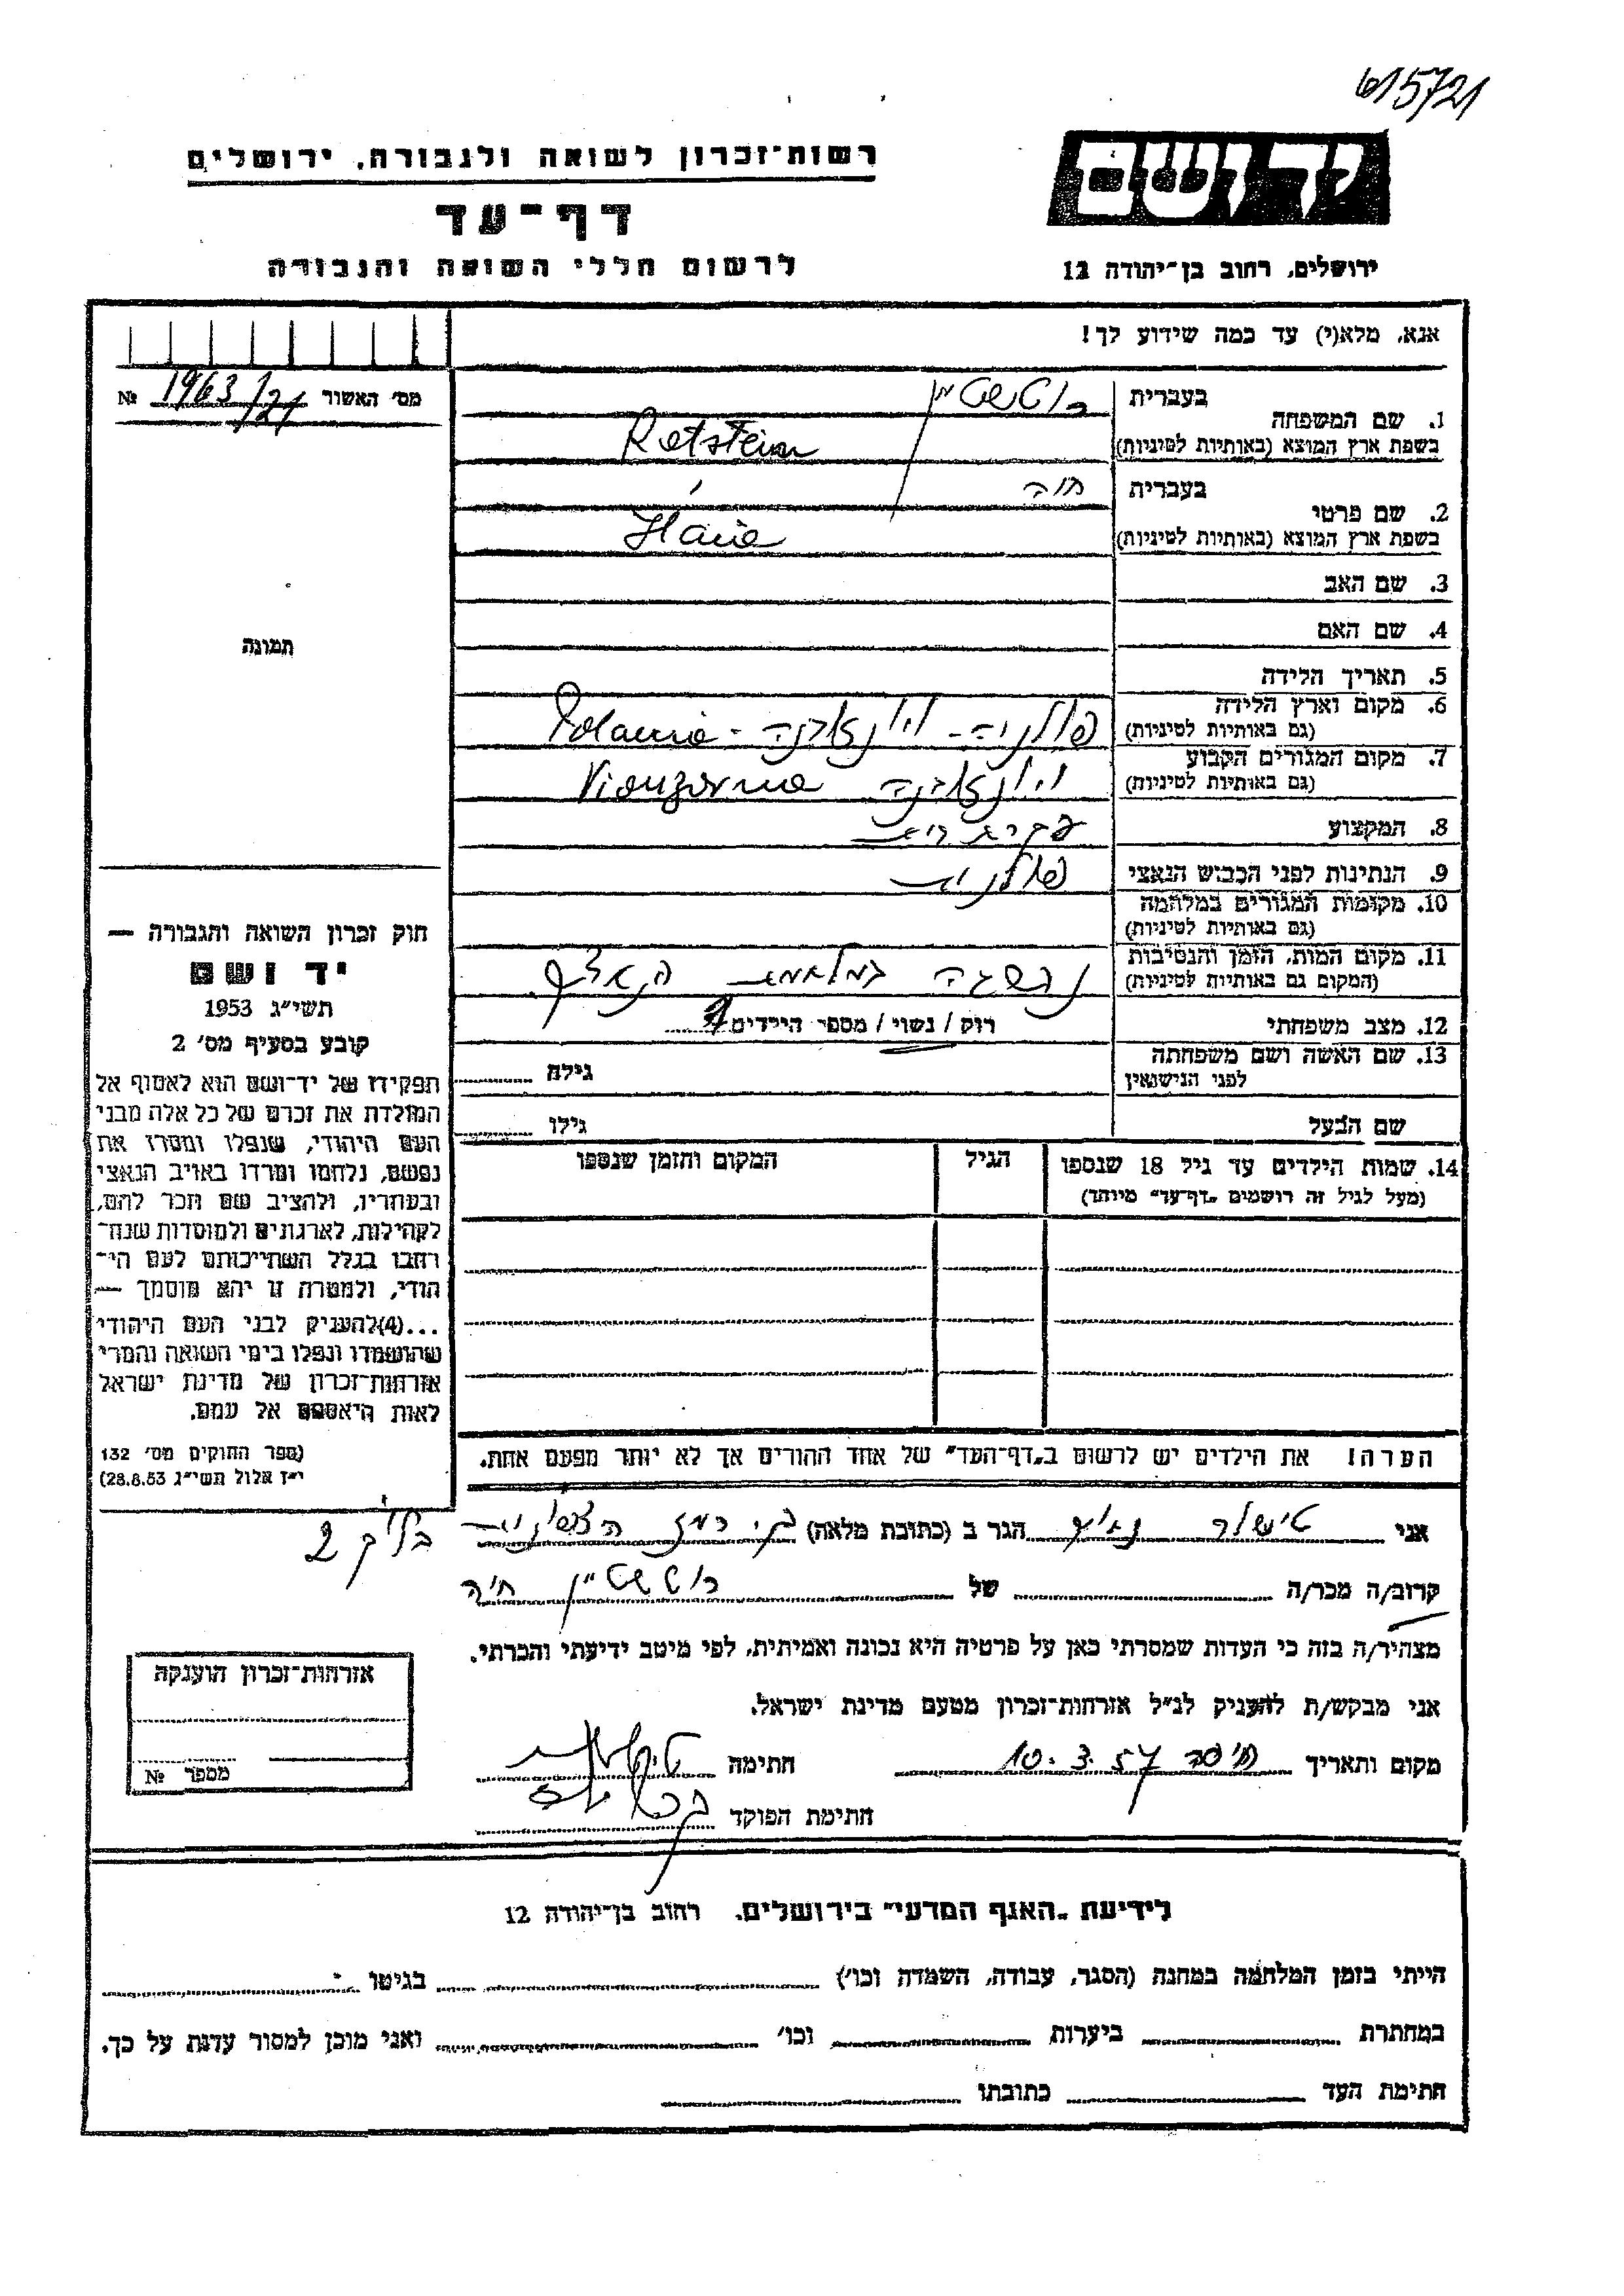 615721
יד ושם
ירושלים, רחוב בן־יהודה 12
רשות־זכרון לשואה ולגבורה, ירושלים
דף־עד
לרשום חללי השואה והגבורה
אנא, מלא(י) עד כמה שידוע לך!
מס׳ האשור 1963/21 №
1. שם המשפחה
בעברית רוטשטיין
בשפת ארץ המוצא (באותיות לטיניות) Rotstein
2. שם פרטי
בעברית חיה
בשפת ארץ המוצא (באותיות לטיניות)
3. שם האב
4. שם האם
5. תאריך הלידה
6. מקום וארץ הלידה
(גם באותיות לטיניות) פולניה -
7. מקום המגורים הקבוע
(גם באותיות לטיניות)
8. המקצוע עקרת בית
9. הנתינות לפני הכבוש הנאצי פולנית
10. מקומות המגורים במלחמה
(גם באותיות לטיניות)
11. מקום המות, הזמן והנסיבות
(המקום גם באותיות לטיניות) נהרגה
12. מצב משפחתי רוק / נשוי / מספר הילדים
13. שם האשה ושם משפחתה
לפני הנישואין גילה
שם הבעל גילו
14. שמות הילדים עד גיל 18 שנספו הגיל המקום והזמן שנספו
(מעל לגיל זה רושמים „דף־עד״ מיוחד)
הערה! את הילדים יש לרשום ב„דף־העד״ של אחד ההורים אך לא יותר מפעם אחת.
תמונה
חוק זכרון השואה והגבורה —
יד ושם
תשי״ג 1953
קובע בסעיף מס׳ 2
תפקידו של יד־ושם הוא לאסוף אל
המולדת את זכרם של כל אלה מבני
העם היהודי, שנפלו ומסרו את
נפשם, נלחמו ומרדו באויב הנאצי
ובעוזריו, ולהציב שם וזכר להם,
לקהילות, לארגונים ולמוסדות שנח־
רבו בגלל השתייכותם לעם הי־
הודי, ולמטרה זו יהא מוסמך —
...(4)להעניק לבני העם היהודי
שהושמדו ונפלו בימי השואה והמרי
אזרחות־זכרון של מדינת ישראל
לאות היאספם אל עמם.
(ספר החוקים מס׳ 132
י״ז אלול תשי״ג 28.8.53)
אני טישלר הגר ב (כתובת מלאה)
בלוק 2
קרוב/ה מכר/ה של רוטשטיין חיה
מצהיר/ה בזה כי העדות שמסרתי כאן על פרטיה היא נכונה ואמיתית, לפי מיטב ידיעתי והכרתי.
אני מבקש/ת להעניק לנ״ל אזרחות־זכרון מטעם מדינת ישראל.
מקום ותאריך חיפה 10.3.57 חתימה
חתימת הפוקד
אזרחות־זכרון הוענקה
מספר №
לידיעת „האגף המדעי״ בירושלים, רחוב בן־יהודה 12
הייתי בזמן המלחמה במחנה (הסגר, עבודה, השמדה וכו׳) בגיטו
במחתרת ביערות וכו׳ ואני מוכן למסור עדות על כך.
חתימת העד כתובתו